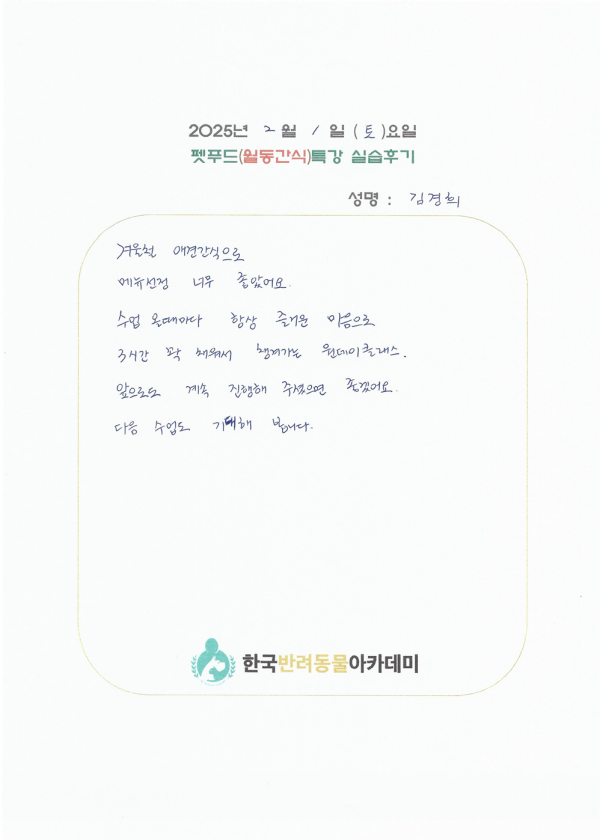 2025년 2월 1일 (토)요일
펫푸드(월동간식)특강 실습후기
성명 : 김경희
겨울철 애견간식으로
메뉴선정 너무 좋았어요.
수업 올때마다 항상 즐거운 마음으로
3시간 꽉 채워서 챙겨가는 원데이클래스.
앞으로도 계속 진행해 주셨으면 좋겠어요.
다음 수업도 기대해 봅니다.
한국반려동물아카데미